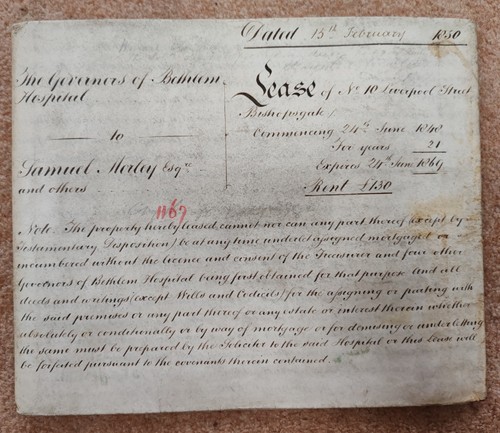 Dated 15th February 1850
The Governors of Bethlem Hospital
to
Samuel Morley Esqre.
and others
Lease of No. 10 Liverpool Street
Bishopsgate
Commencing 24th June 1848
For years 21
Expires 24th June 1869
Rent £130
1167
Note. The property hereby leased cannot nor can any part thereof (except by
Testamentary Disposition) be at any time underlet assigned mortgaged or
incumbered without the licence and consent of the Treasurer and four other
Governors of Bethlem Hospital being first obtained for that purpose And all
deeds and writings (except Wills and Codicils) for the assigning or parting with
the said premises or any part thereof or any estate or interest therein whether
absolutely or conditionally or by way of mortgage or for demising or underletting
the same must be prepared by the Solicitor to the said Hospital or this Lease will
be forfeited pursuant to the covenants therein contained.